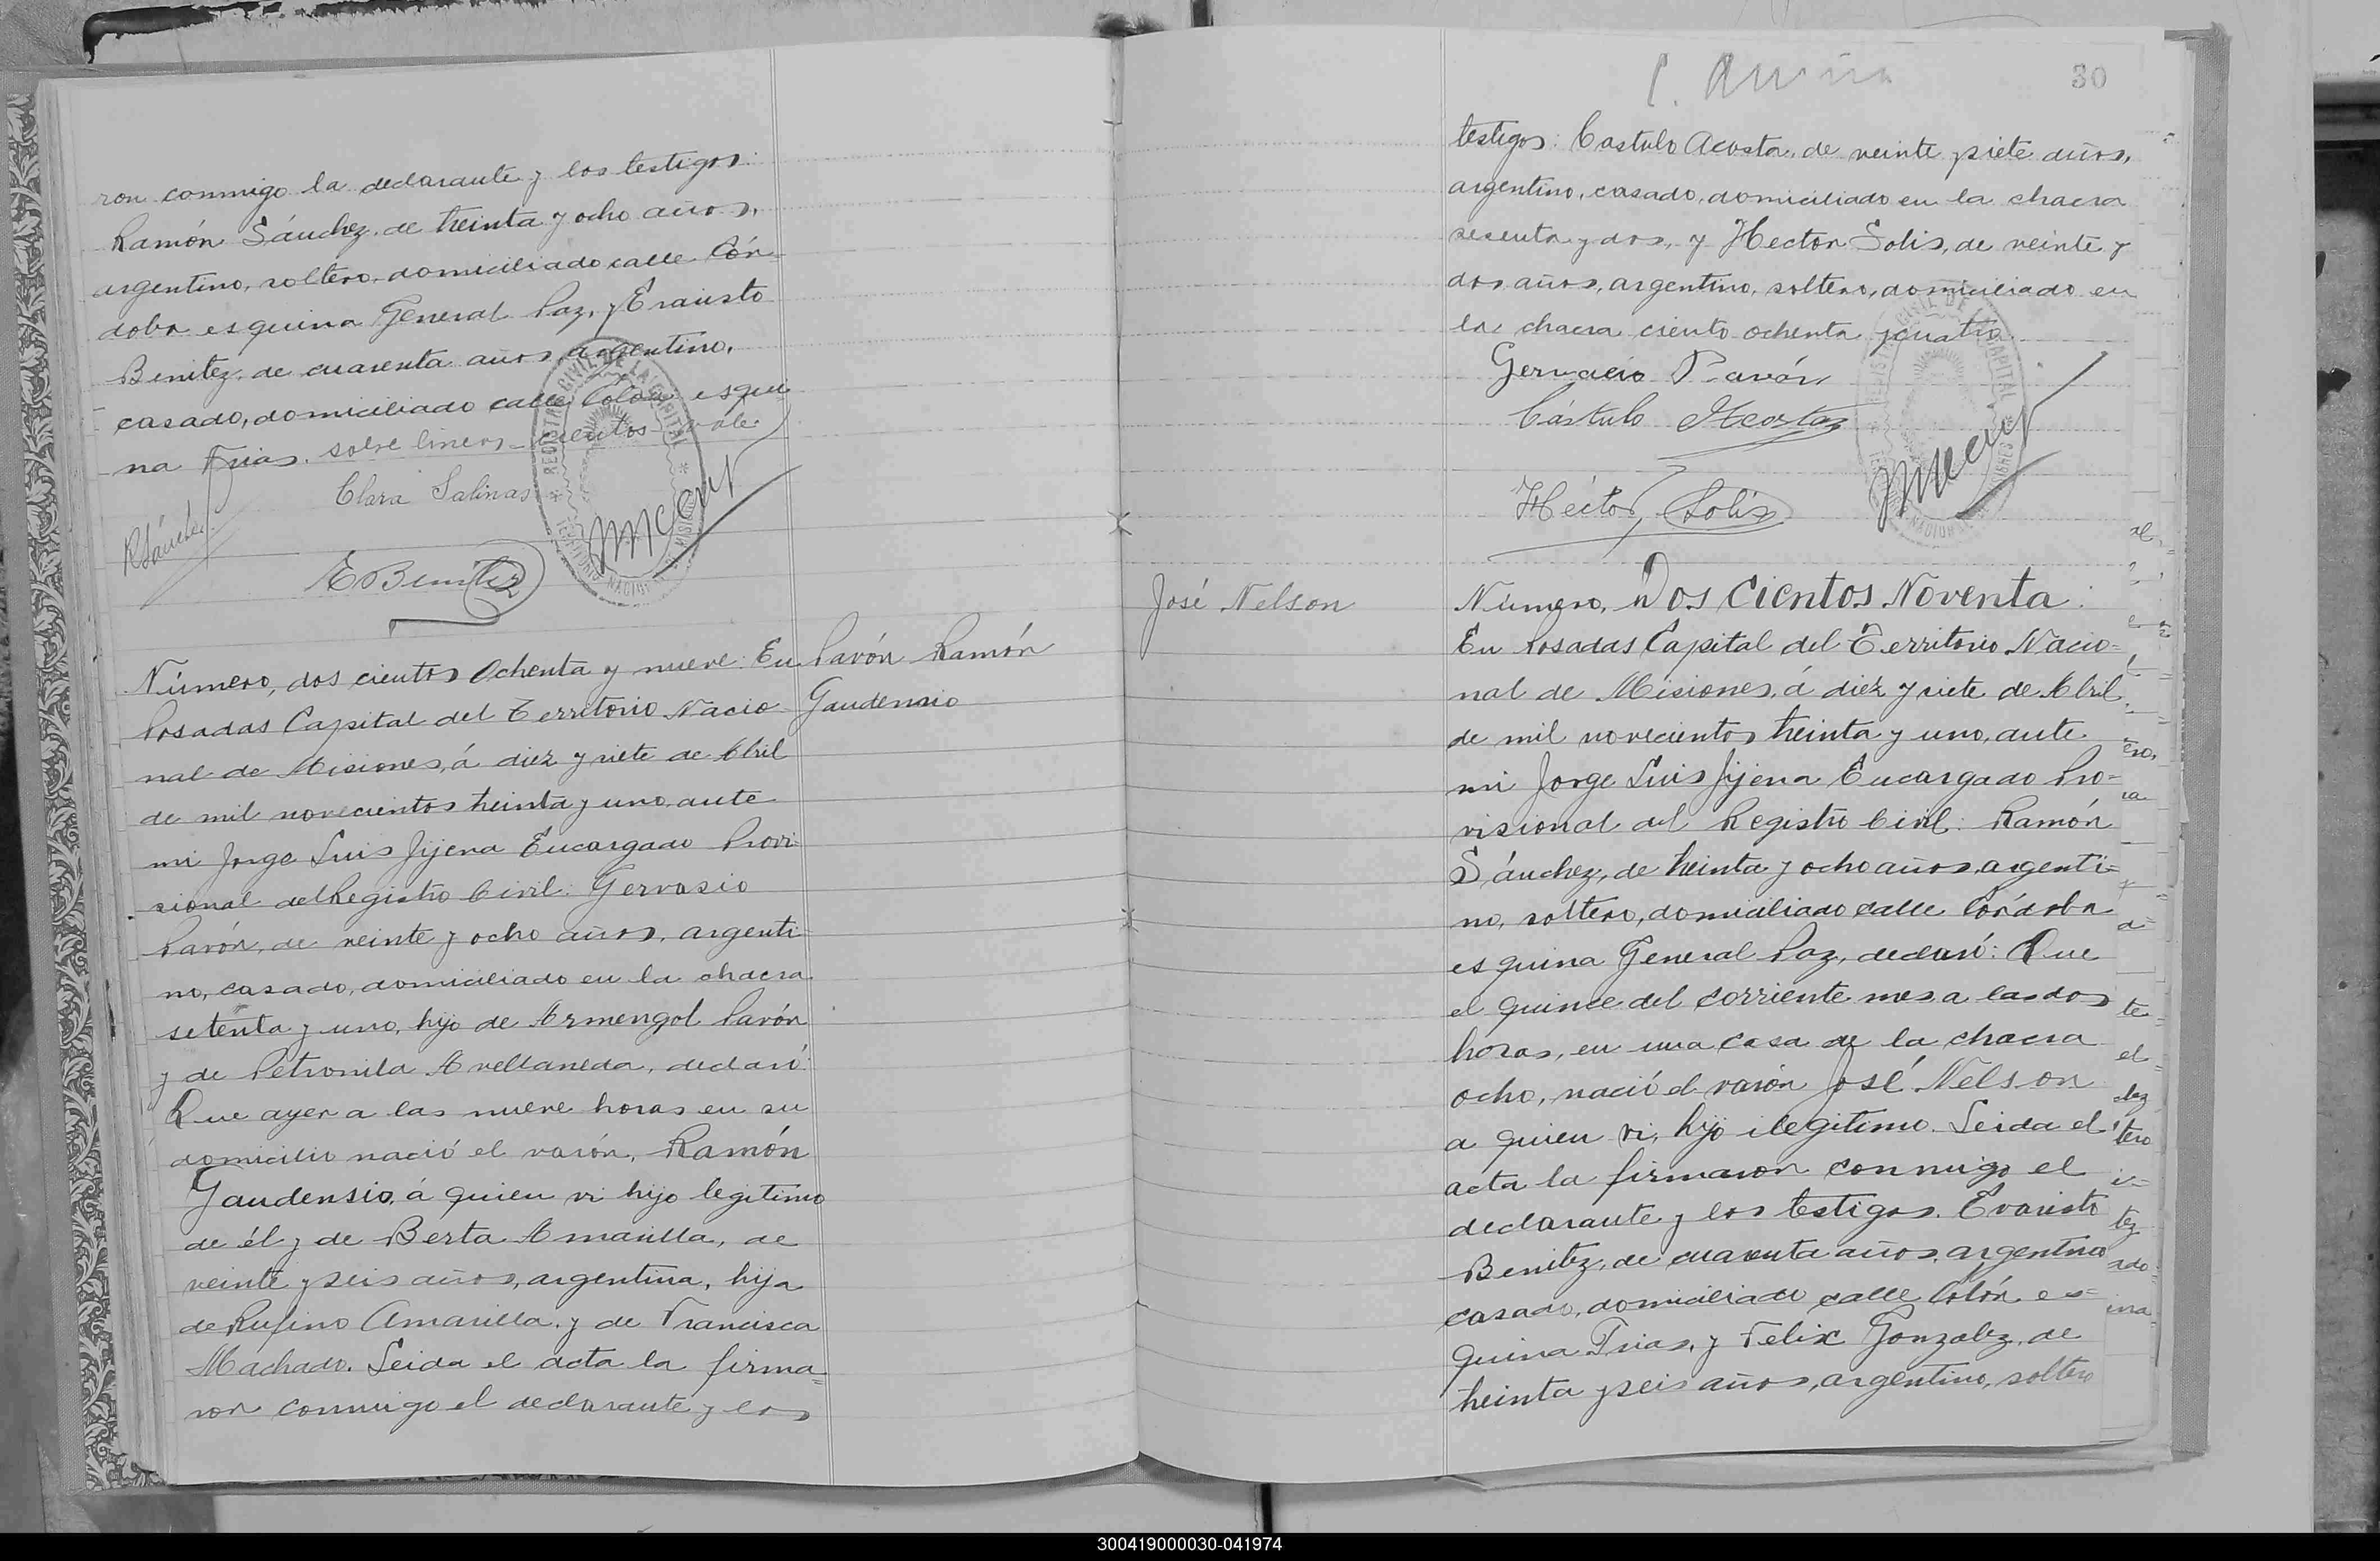 ron conmigo la declarante y los testigos:
Ramón Sánchez, de treinta y ocho años,
argentino, soltero, domiciliado calle Cór-
doba esquina General Paz, y Evaristo
Benitez, de cuarenta años, argentino,
casado, domiciliado calle Colón esqui
na Frias. sobre lineas-cientos-vale.
Clara Salinas
RSánchez
EBenitez
REGISTRO CIVIL DE LA CAPITAL
TERRITORIO NACIONAL DE MISIONES
Pavón Ramón
Gaudensio
Número, dos cientos Ochenta y nueve: En
Posadas Capital del Territorio Nacio
nal de Misiones, á diez y siete de Abril
de mil novecientos treinta y uno, ante
mi Jorge Luis Jijena Encargado Provi-
sional del Registro Civil: Gervasio
Pavón, de veinte y ocho años, argenti-
no, casado, domiciliado en la chacra
setenta y uno, hijo de Armengol Pavón
y de Petronila Avellaneda, declaró:
Que ayer a las nueve horas en su
domicilio nació el varón, Ramón
Gaudensio, á quien vi hijo legitimo
de él y de Berta Amarilla, de
veinte y seis años, argentina, hija
de Rufino Amarilla, y de Francisca
Machado. Leida el acta la firma=
ron conmigo el declarante y los
30
testigos: Castulo Acosta, de veinte y siete años,
argentino, casado, domiciliado en la chacra
sesenta y dos, y Hector Solis, de veinte y
dos años, argentino, soltero, domiciliado en
la chacra ciento ochenta y cuatro.
Gervacio Pavón
Cástulo Acosta
Héctor Solis
José Nelson
Número, Dos Cientos Noventa:
En Posadas Capital del Territorio Nacio=
nal de Misiones, á diez y siete de Abril
de mil novecientos treinta y uno, ante
mi Jorge Luis Jijena Encargado Pro=
visional del Registro Civil: Ramón
Sánchez, de treinta y ocho años, argenti=
no, soltero, domiciliado calle Córdoba
esquina General Paz, declaró: Que
el quince del corriente mes a las dos
horas, en una casa de la chacra
ocho, nació el varón José Nelson
a quien vi, hijo ilegitimo. Leida el
acta la firmaron conmigo el
declarante y los testigos. Evaristo
Benitez, de cuarenta años, argentino
casado, domiciliado calle Colón es=
quina Frias, y Felix Gonzalez, de
treinta y seis años, argentino, soltero
300419000030-041974